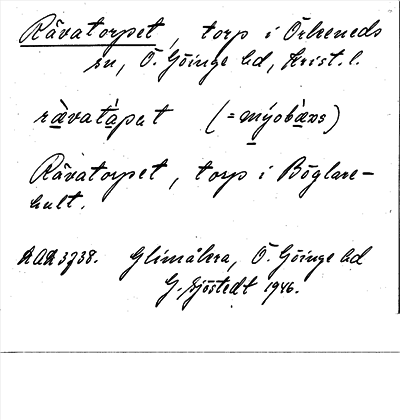 Rävatorpet, torp i Örkeneds
sn, Ö. Göinge hd, Krist. l.
rävatåpat (= mýobàns)
Rävatorpet, torp i Böglare-
hult.
Glimåkra, Ö. Göinge hd
G. Sjöstedt 1946.